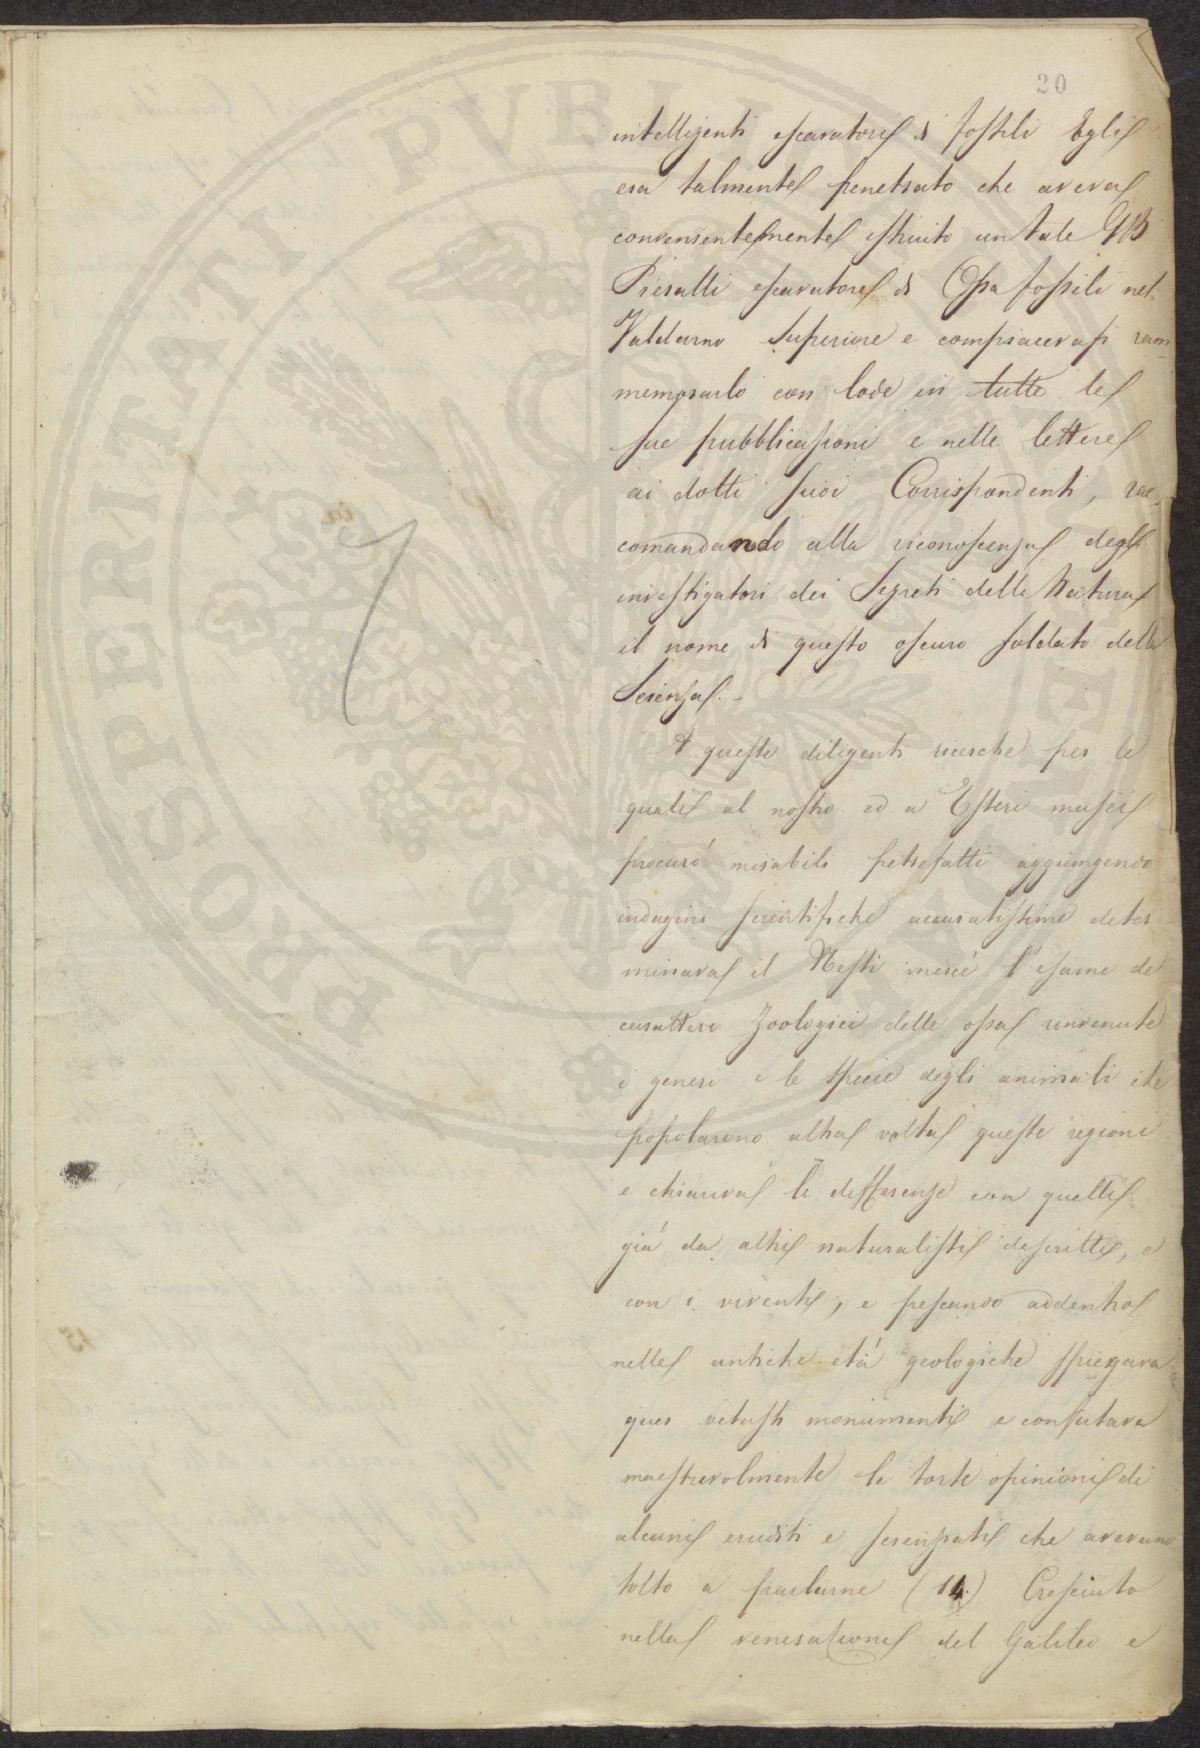 20
intelligenti escavatori di fossili Egli
era talmente penetrato che aveva
convenientemente istruito un tale GB
Pieralli escavatore di Ossa fossili nel
Valdarno Superiore e compiacevasi ram
memorarlo con lode in tutte le
sue pubblicazioni e nelle lettere
ai dotti suoi Corrispondenti, rac
comandando alla riconoscenza degli
investigatori dei Segreti della Natura
il nome di questo oscuro soldato della
Scienza. -
A queste diligenti ricerche per le
quali al nostro ed a Esteri musei
procurò mirabili petrefatti aggiungendo
indagini scientifiche accuratissime deter
minava il Nesti mercè l'esame de
caratteri Zoologici delle ossa rinvenute
i generi e le specie degli animali che
popolarono altra volta queste regioni
e chiariva le differenze con quelli
già da altri naturalisti descritti, e
con i viventi; e pescando addentro
nelle antiche età geologiche spiegava
quei vetusti monumenti e confutava
maestrevolmente le torte opinioni di
alcuni eruditi e scienziati che avevano
tolto a parlarne (14.) Cresciuto
nella venerazione del Galileo e
PROSPERITATI PVBLI